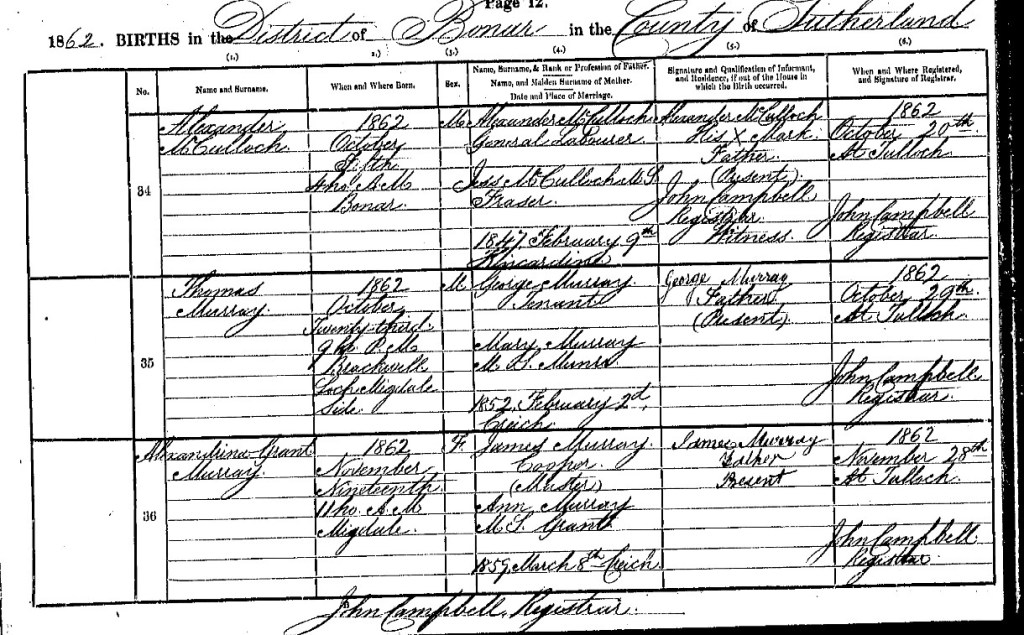 Page 12.
1862. BIRTHS in the District of Bonar in the County of Sutherland
(1.) (2.) (3.) (4.) (5.) (6.)
No.
Name and Surname.
When and Where Born.
Sex.
Name, Surname, & Rank or Profession of Father.
Name, and Maiden Surname of Mother.
Date and Place of Marriage.
Signature and Qualification of Informant,
and Residence, if out of the House in
which the Birth occurred.
When and Where Registered,
and Signature of Registrar.
34
Alexander
McCulloch
1862
October
Fifth
4ho. A.M.
Bonar.
M
Alexander McCulloch
General Labourer
Jess McCulloch M.S.
Fraser.
1847, February 9th
Kincardine
Alexander McCulloch
His X Mark.
Father
(Present).
John Campbell
Registrar.
Witness.
1862
October 20th
At Tulloch
John Campbell
Registrar.
35
Thomas
Murray.
1862
October
Twenty third.
9ho. P.M.
Loch Migdale
Side.
M.
George Murray
Tenant
Mary Murray
M.S. Munro
1852, February 2d,
Creich
George Murray
Father
(Present)
1862
October 29th.
At Tulloch.
John Campbell
Registrar.
36
Alexandrina Grant
Murray.
1862
November
Nineteenth
11ho. A.M.
Migdale.
F.
James Murray.
Cooper.
(Master)
Ann Murray
M.S. Grant.
1859, March 8th Creich.
James Murray
Father
Present
1862
November 28th
At Tulloch.
John Campbell.
Registrar
John Campbell, Registrar.